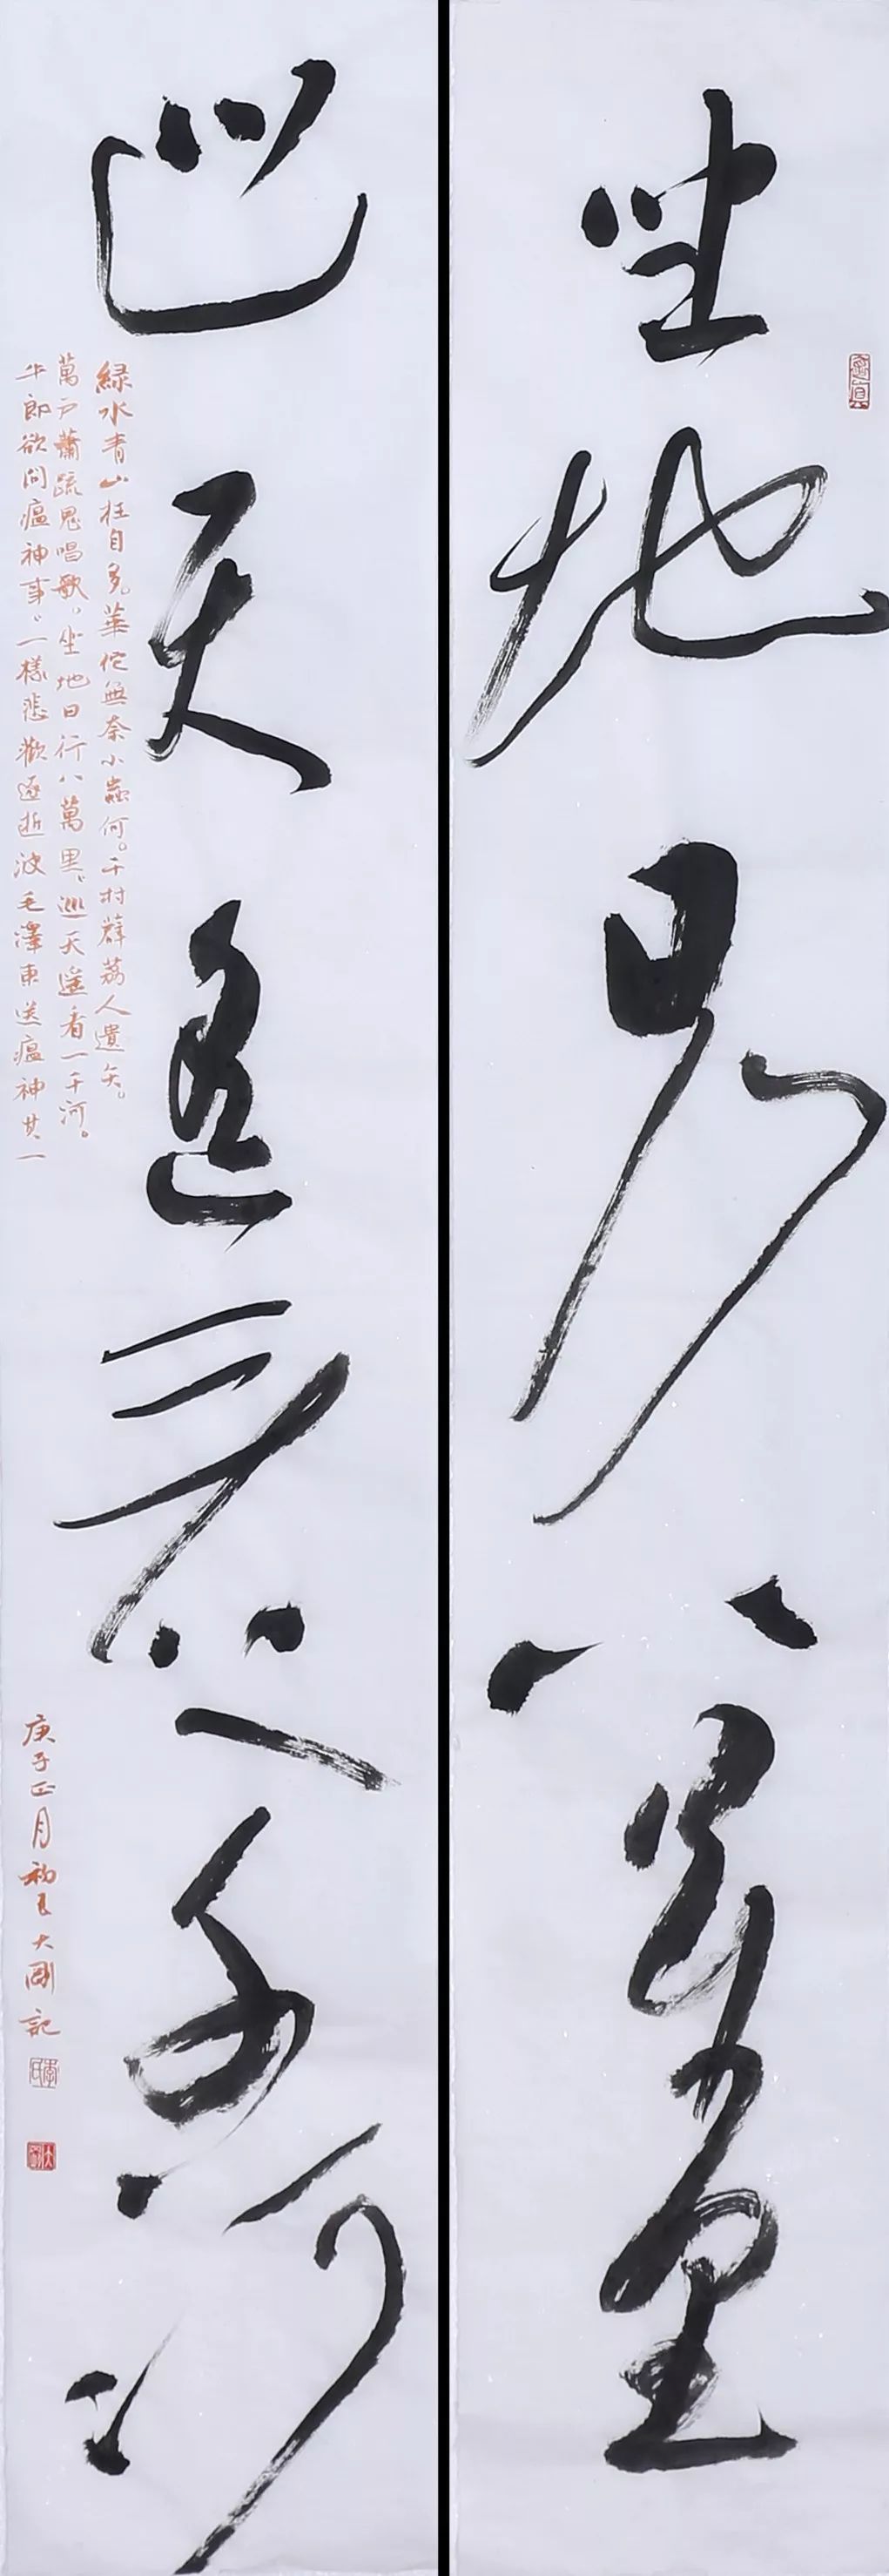 坐地日行八萬里
巡天遥看一千河
緑水青山枉自多。華佗無奈小蟲何。千村薜荔人遺矢。
萬户蕭疏鬼唱歌。坐地日行八萬里、巡天遥看一千河。
牛郎欲問瘟神事、一樣悲歡逐逝波毛澤東送瘟神其一
庚子正月初五大剛記